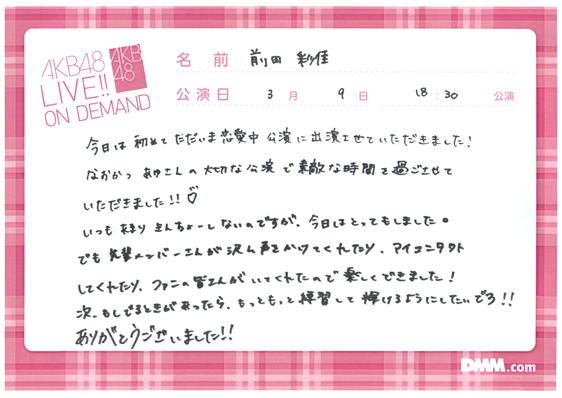 AKB48
LIVE!!
ON DEMAND
AKB
48
名前 前田 彩佳
公演日 3月 9日 18:30 公演
今日は初めてただいま恋愛中公演に出演させていただきました!
なおかつ あゆさんの大切な公演で素敵な時間を過ごさせて
いただきました!!♡
いつもあまりきんちょーしないのですが、今日はとってもしました。
でも先輩メンバーさんが沢山声をかけてくれたり、アイコンタクト
してくれたり、ファンの皆さんがいてくれたので楽しくできました!
次、もしでるときがあったら、もっともっと練習して輝けるようにしたいでる!!
ありがとうございました!!
DMM.com